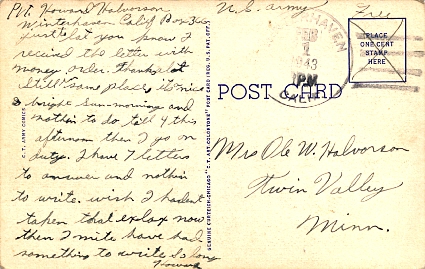 Pvt. Howard Halvorson
Winterhaven Calif Box 360
just let you know I
received the letter with
money order. thanks a lot
Still same place, its nice
bright sun-morning and
nothin to do till 4 this
afternoon then I go on
duty. I have 7 letters
to answer and nothin
to write. wish I hadent
taken that exlax now
then I mite have had
something to write So long
Howard
C.T. ARMY COMICS
GENUINE CURTEICH-CHICAGO "C.T. ART-COLORTONE" POST CARD (REG. U.S. PAT. OFF.)
U.S. army
Free
HAVEN
1
1943
PM
CALIF
PLACE
ONE CENT
STAMP
HERE
POST CARD
Mrs Ole W. Halvorson
Twin Valley
Minn.